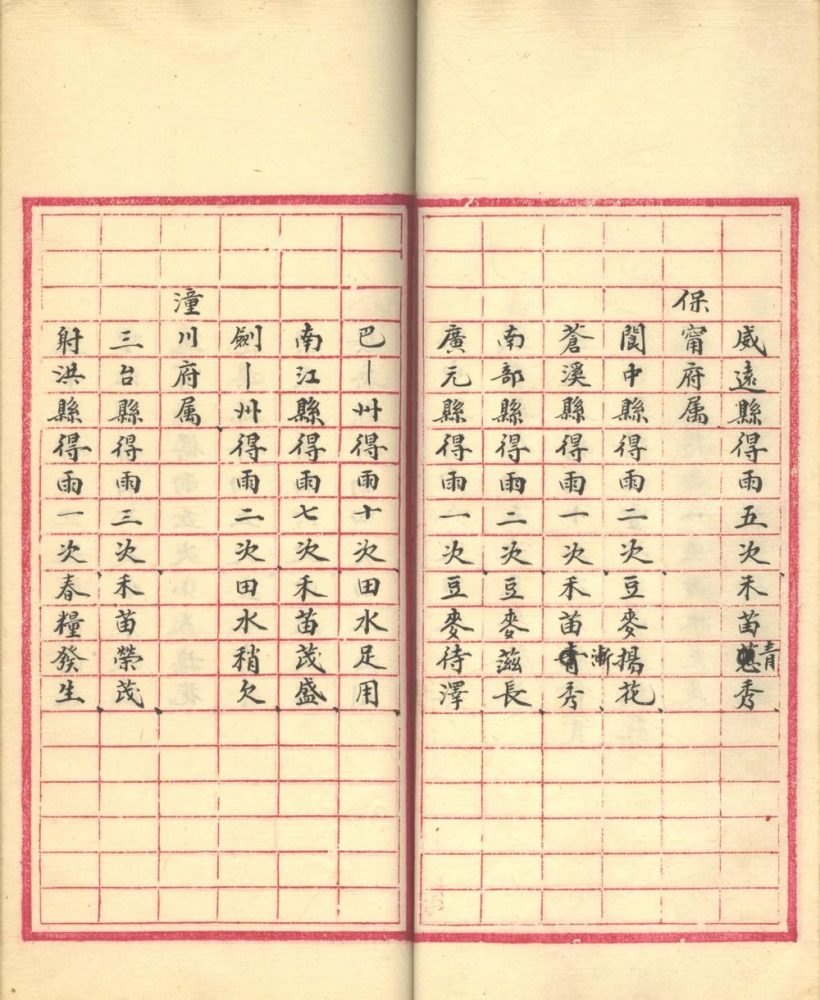 威遠縣得雨五次禾苗青秀
保甯府属
閬中縣得雨二次豆麥揚花
蒼溪縣得雨十次禾苗漸秀
南部縣得雨二次豆麥滋長
廣元縣得雨一次豆麥待澤
巴丨州得雨十次田水足用
南江縣得雨七次禾苗茂盛
劍丨州得雨二次田水稍欠
潼川府属
三台縣得雨三次禾苗榮茂
射洪縣得雨一次春糧發生